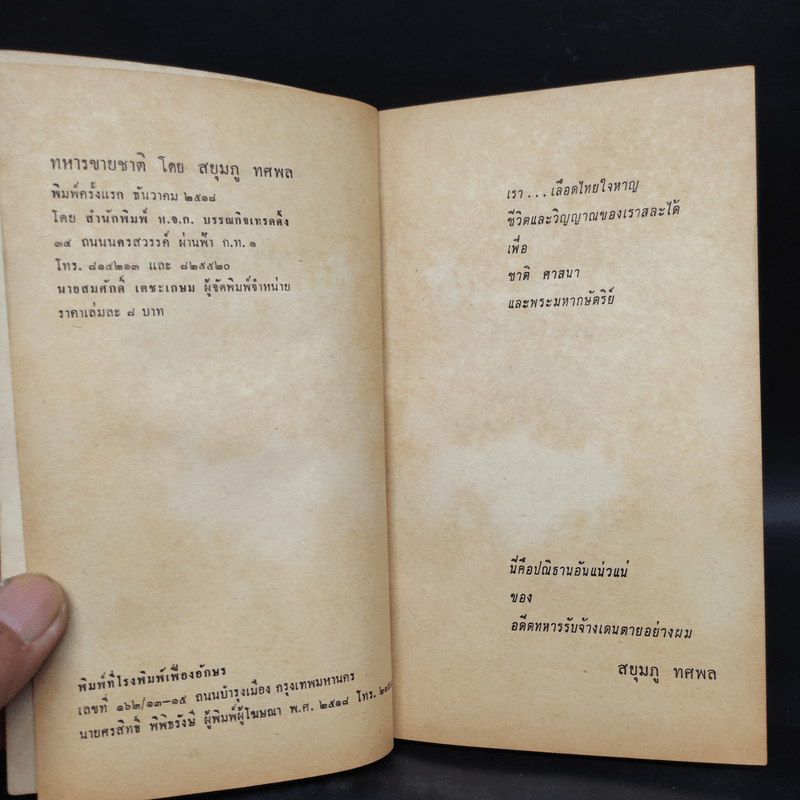 ทหารขายชาติ โดย สยุมภู ทศพล
พิมพ์ครั้งแรก ธันวาคม ๒๕๑๘
โดย สำนักพิมพ์ ห.จ.ก. บรรณกิจเทรดดิ้ง
๓๔ ถนนนครสวรรค์ ผ่านฟ้า ก.ท. ๑
โทร. ๘๑๔๒๑๓ และ ๘๒๕๕๒๐
นายสมศักดิ์ เตชะเกษม ผู้จัดพิมพ์จำหน่าย
ราคาเล่มละ ๘ บาท
พิมพ์ที่โรงพิมพ์เฟื่องอักษร
เลขที่ ๑๖๒/๑๓-๑๕ ถนนบำรุงเมือง กรุงเทพมหานคร
นายศรสิทธิ์ พิพิธรังษี ผู้พิมพ์ผู้โฆษณา พ.ศ. ๒๕๑๘ โทร.
เรา ... เลือดไทยใจหาญ
ชีวิตและวิญญาณของเราสละได้
เพื่อ
ชาติ ศาสนา
และพระมหากษัตริย์
นี่คือปณิธานอันแน่วแน่
ของ
อดีตทหารรับจ้างเดนตายอย่างผม
สยุมภู ทศพล